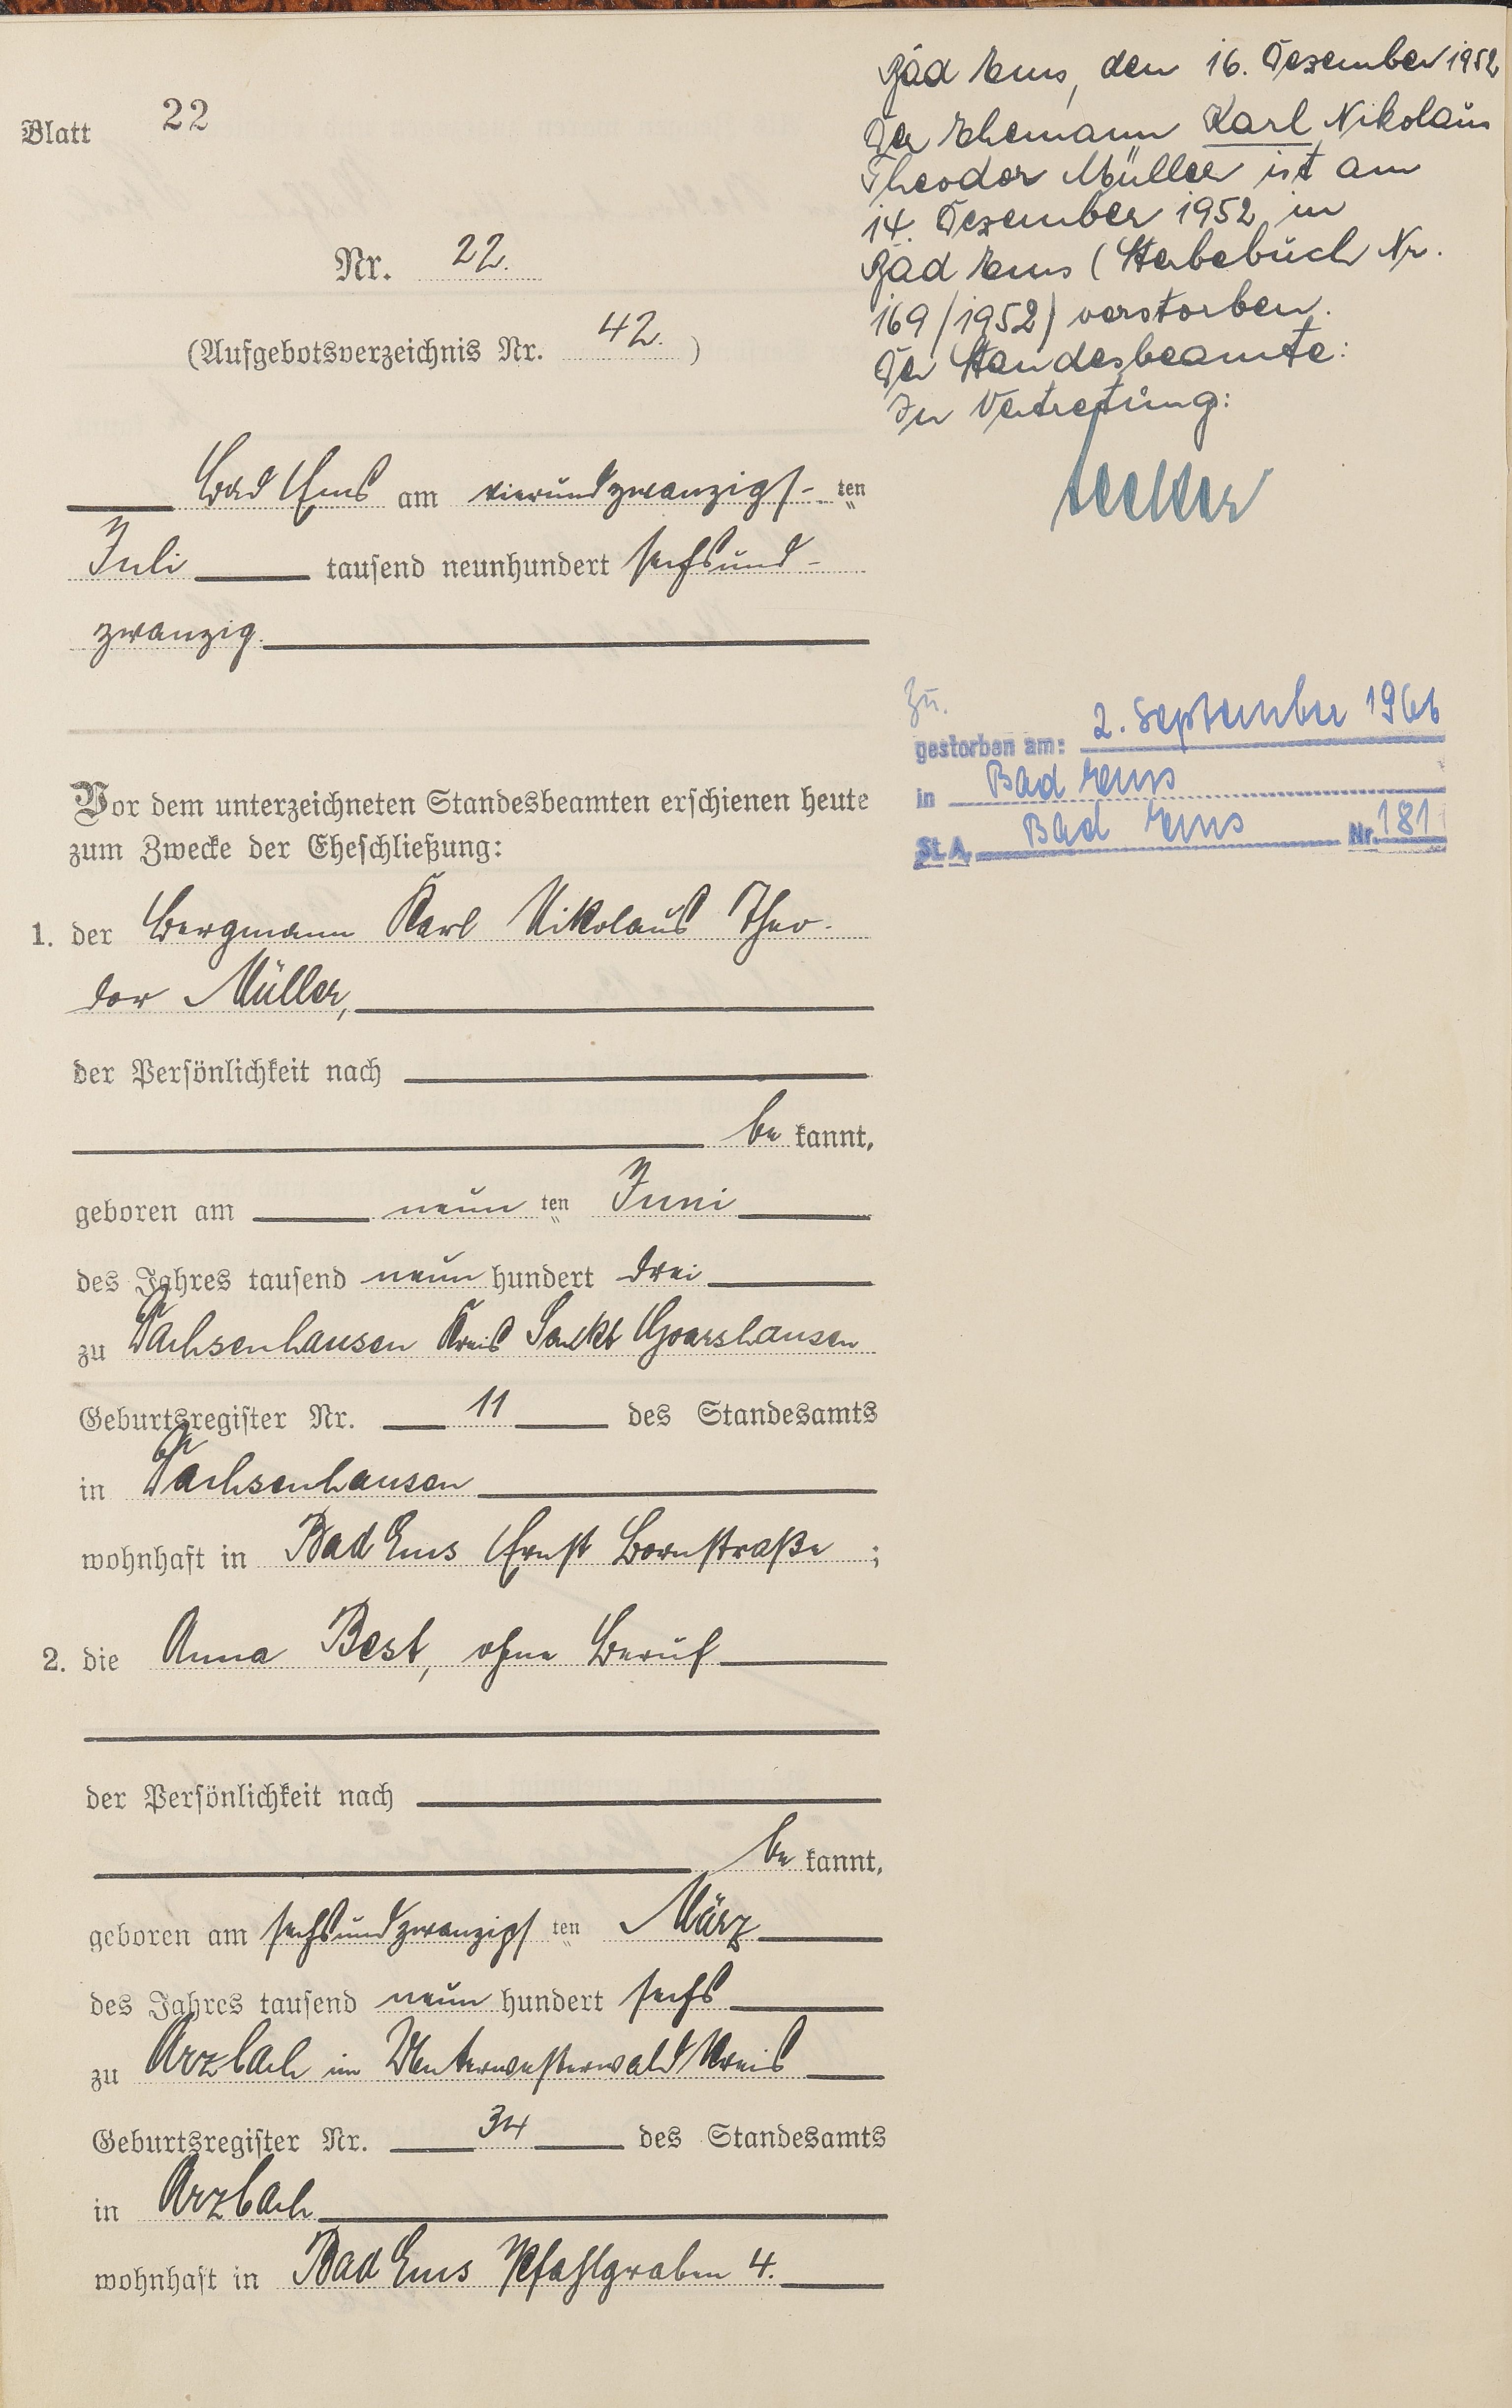 Blatt 22
Nr. 22.
(Aufgebotsverzeichnis Nr. 42.)
Bad Ems am vierundzwanzigs-ten
Juli tausend neunhundert sechsund-
zwanzig.
Vor dem unterzeichneten Standesbeamten erschienen heute
zum Zwecke der Eheschließung:
1. der Bergmann Karl Nikolaus Theo-
dor Müller,
der Persönlichkeit nach
be kannt,
geboren am neun ten Juni
des Jahres tausend neun hundert drei
zu Dachsenhausen Kreis Sankt Goarshausen
Geburtsregister Nr. 11 des Standesamts
in Dachsenhausen
wohnhaft in Bad Ems Ernst Bornstraße;
2. die Anna Best, ohne Beruf
der Persönlichkeit nach
be kannt,
geboren am sechsundzwanzigs ten März
des Jahres tausend neun hundert sechs
zu Arzbach im Unterwesterwald Kreis
Geburtsregister Nr. 34 des Standesamts
in Arzbach
wohnhaft in Bad Ems Pfahlgraben 4.
Bad Ems, den 16. Dezember 1952
Der Ehemann Karl Nikolaus
Theodor Müller ist am
14. Dezember 1952 in
Bad Ems (Sterbebuch Nr.
169/1952) verstorben.
Der Standesbeamte:
In Vertretung:
zu.
gestorben am: 2. September 1966
in Bad Ems
St. A. Bad Ems Nr. 181